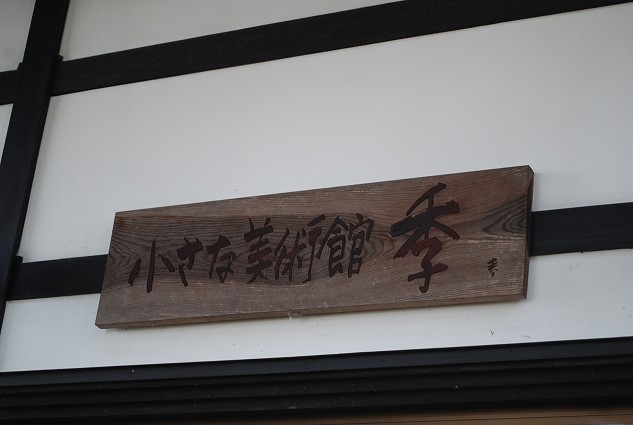 小さな美術館 季